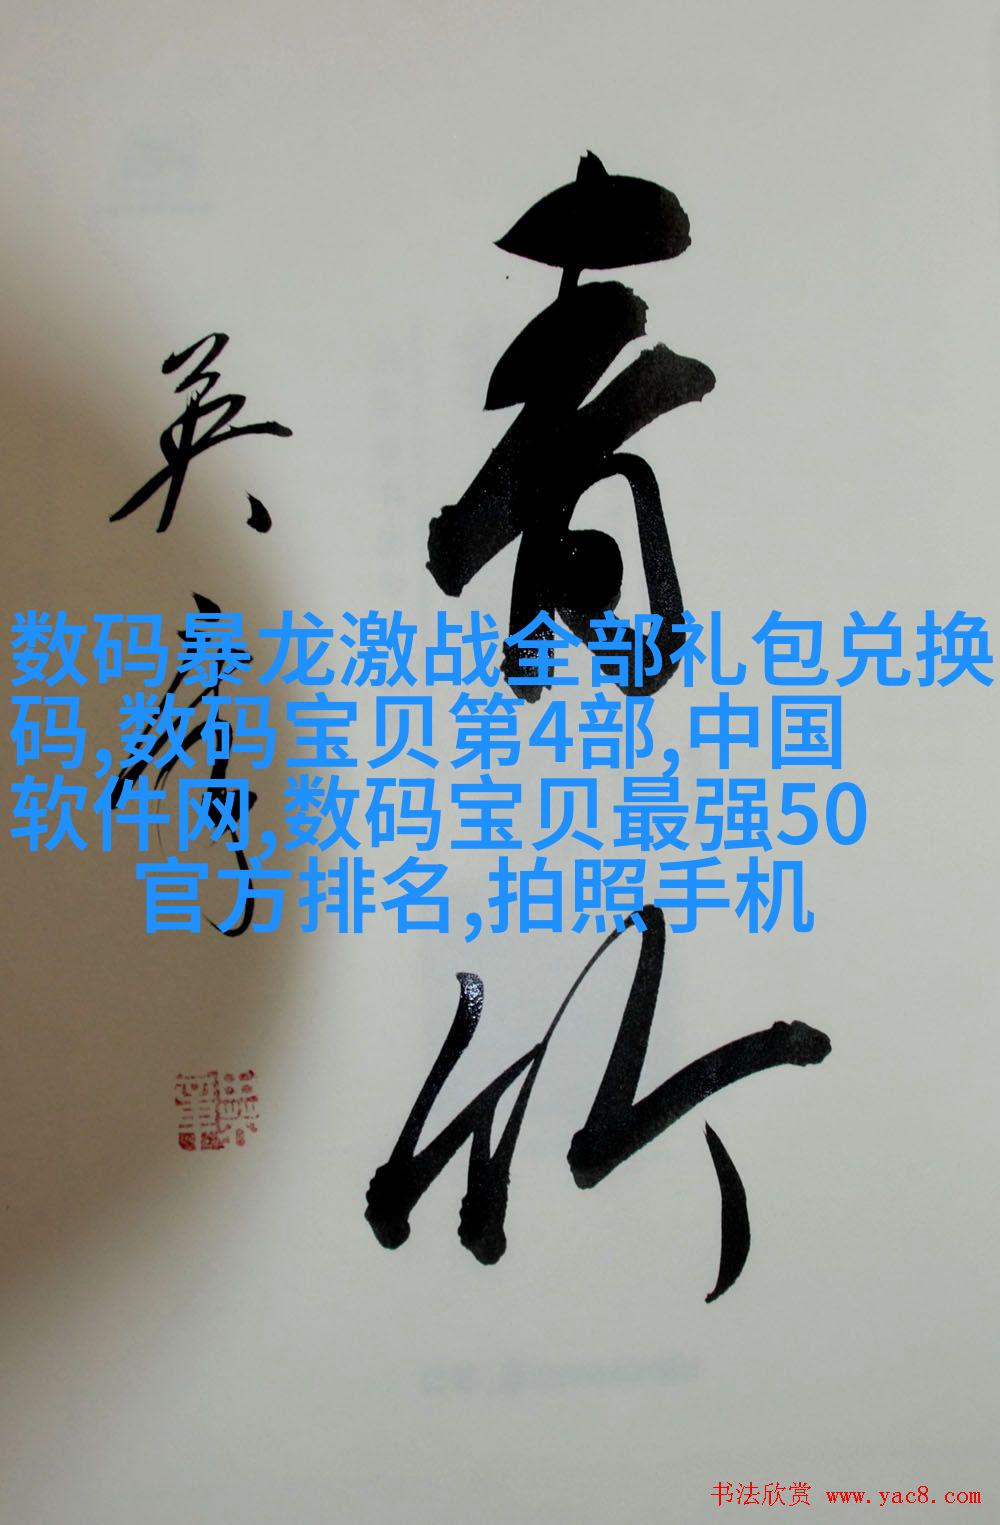 青竹
英彦
数码暴龙激战全部礼包兑换
码,数码宝贝第4部,中国
软件网,数码宝贝最强50
官方排名,拍照手机
书法欣赏 www.yac8.com